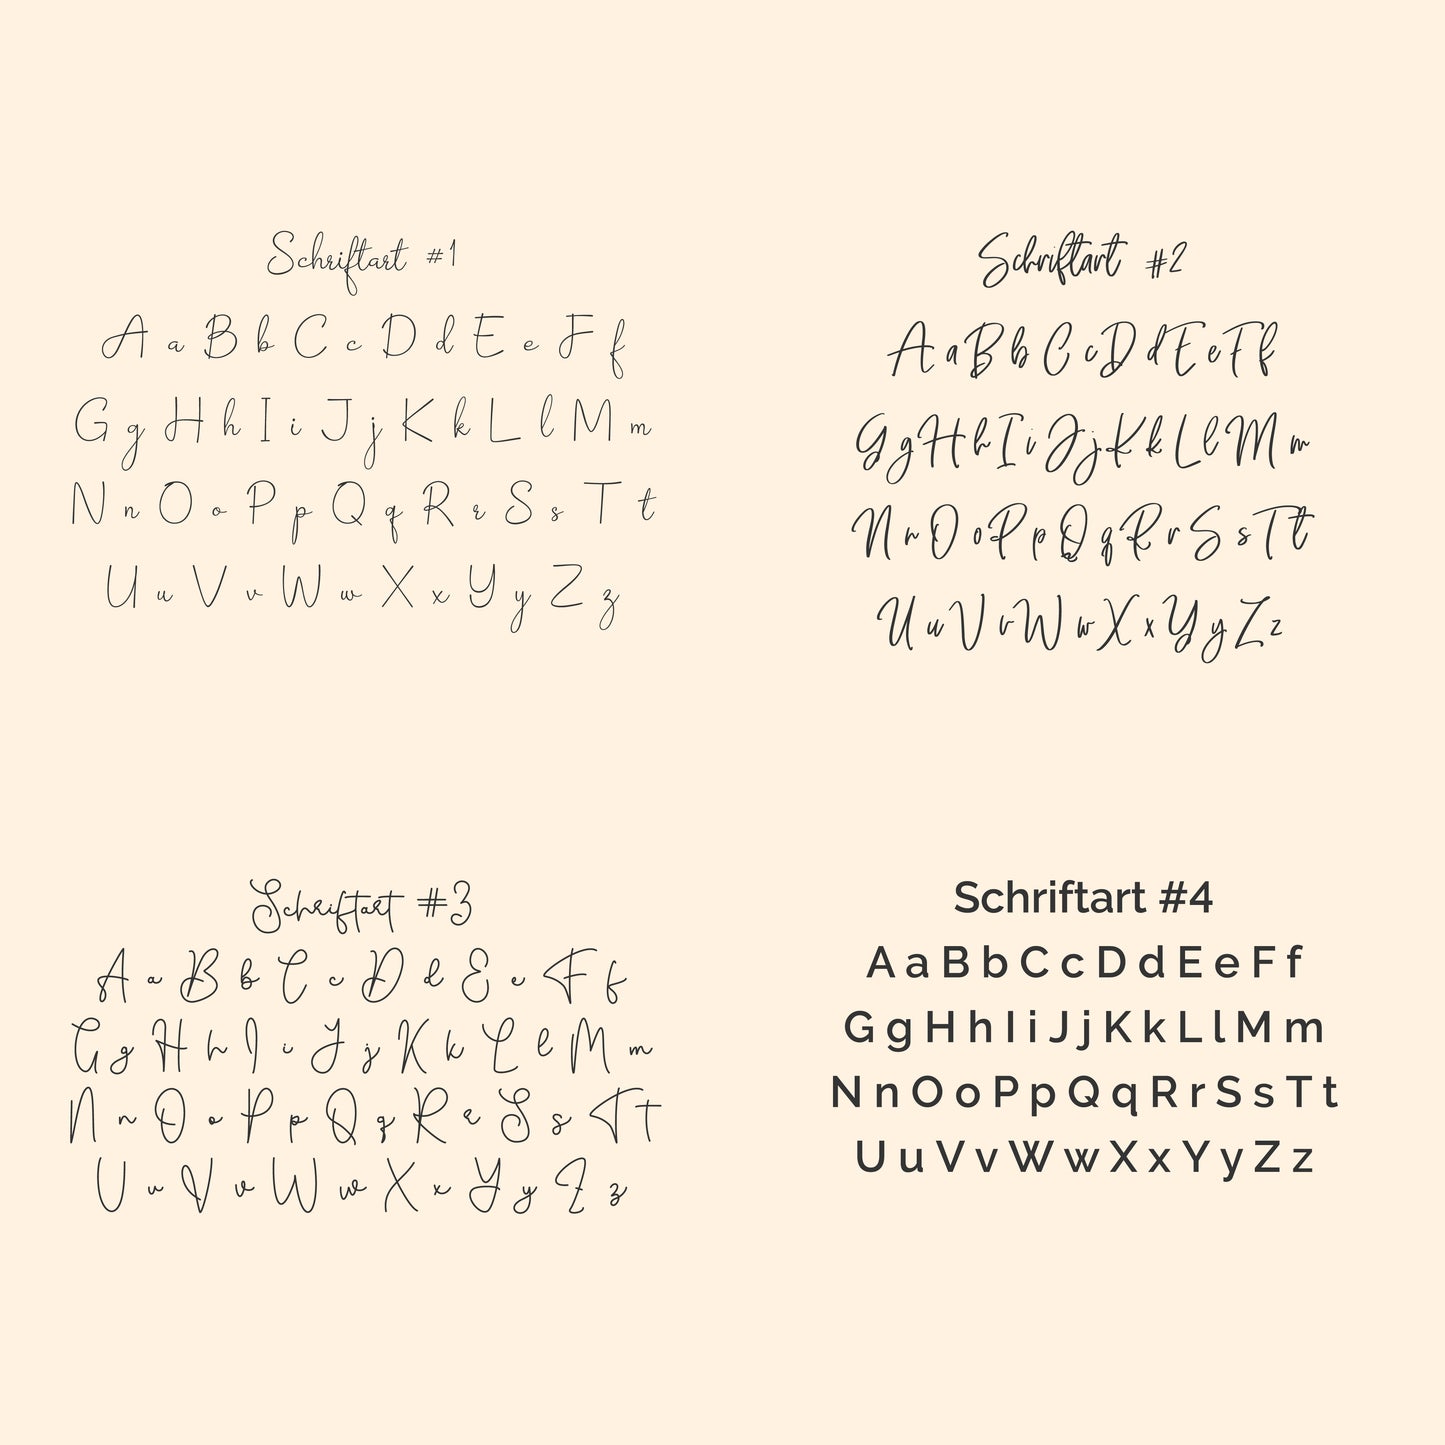 Schriftart #1
A a B b C c D d E e F f
G g H h I i J j K k L l M m
N n O o P p Q q R r S s T t
U u V v W w X x Y y Z z
Schriftart #2
A a B b C c D d E e F f
G g H h I i J j K k L l M m
N n O o P p Q q R r S s T t
U u V v W w X x Y y Z z
Schriftart #3
A a B b C c D d E e F f
G g H h I i J j K k L l M m
N n O o P p Q q R r S s T t
U u V v W w X x Y y Z z
Schriftart #4
A a B b C c D d E e F f
G g H h I i J j K k L l M m
N n O o P p Q q R r S s T t
U u V v W w X x Y y Z z